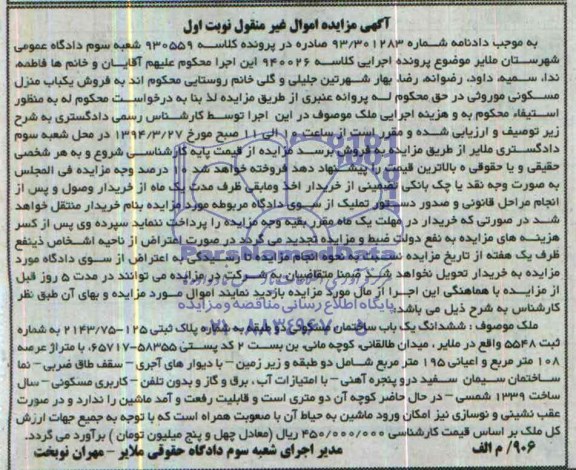 آگهی مزایده اموال غیر منقول نوبت اول
به موجب دادنامه شماره 93/301283 صادره در پرونده کلاسه 930559 شعبه سوم دادگاه عمومی
شهرستان ملایر موضوع پرونده اجرایی کلاسه 940026 این اجرا محکوم علیهم آقایان و خانم ها فاطمه،
ندا، سمیه، داود، رضوانه، رضا، بهار شهرتین جلیلی و گلی خانم روستایی محکوم اند به فروش یکباب منزل
مسکونی موروثی در حق محکوم له پروانه عنبری از طریق مزایده لذا بنا به درخواست محکوم له به منظور
استیفاء محکوم به و هزینه اجرایی ملک موصوف در این اجرا توسط کارشناس رسمی دادگستری به شرح
زیر توصیف و ارزیابی شده و مقرر است از ساعت 10 الی 11 صبح مورخ 1394/3/27 در محل شعبه سوم
دادگستری ملایر از طریق مزایده به فروش برسد مزایده از قیمت پایه کارشناسی شروع و به هر شخصی
حقیقی و یا حقوقی ه بالاترین قیمت را پیشنهاد دهد فروخته خواهد شد 10 درصد وجه مزایده فی المجلس
به صورت وجه نقد یا چک بانکی تضمینی از خریدار اخذ ومابقی ظرف مدت یک ماه از خریدار وصول و پس از
انجام مراحل قانونی و صدور دستور تملیک از سوی دادگاه مربوطه مورد مزایده بنام خریدار منتقل خواهد
شد در صورتی که خریدار در مهلت یک ماه مقرر بقیه وجه مزایده را پرداخت ننماید سپرده وی پس از کسر
هزینه های مزایده به نفع دولت ضبط و مزایده تجدید می گردد در صورت اعتراض از ناحیه اشخاص ذینفع
ظرف یک هفته از تاریخ مزایده نسبت به نحوه انجام مزایده تا رسیدگی به اعتراض از سوی دادگاه مورد
مزایده به خریدار تحویل نخواهد شد ضمنا متقاضیان به شرکت در مزایده می توانند در مدت 5 روز قبل
از مزایده با هماهنگی این اجرا از مال مورد مزایده بازدید نمایند اموال مورد مزایده و بهای آن طبق نظر
کارشناس به شرح ذیل می باشد:
ملک موصوف: ششدانگ یک باب ساختمان مسکونی دو طبقه به شماره پلاک ثبتی 125-2143/75 به شماره
ثبت 5548 واقع در ملایر، میدان طالقانی، کوچه مانی، بن بست 2 کد پستی 58355-65717، با متراژ عرصه
108 متر مربع و اعیانی 195 متر مربع شامل دو طبقه و زیر زمین – با دیوار های آجری – سقف طاق ضربی – نما
ساختمان سیمان سفید درو پنجره آهنی – با امتیازات آب، برق و گاز و بدون تلفن – کاربری مسکونی – سال
ساخت 1339 شمسی – در حال حاضر کوچه آن دو متری است و قابلیت رفعت و آمد ماشین را ندارد و در صورت
عقب نشینی و نوسازی نیز امکان ورود ماشین به حیاط آن با صعوبت همراه است که با توجه به جمیع جهات ارزش
کل ملک بر اساس قیمت کارشناسی 450/000/000 ریال (معادل چهل و پنج میلیون تومان) برآورد می گردد.
906/م الف
مدیر اجرای شعبه سوم دادگاه حقوقی ملایر – مهران نوبخت
پایگاه اطلاع رسانی مناقصه و مزایده